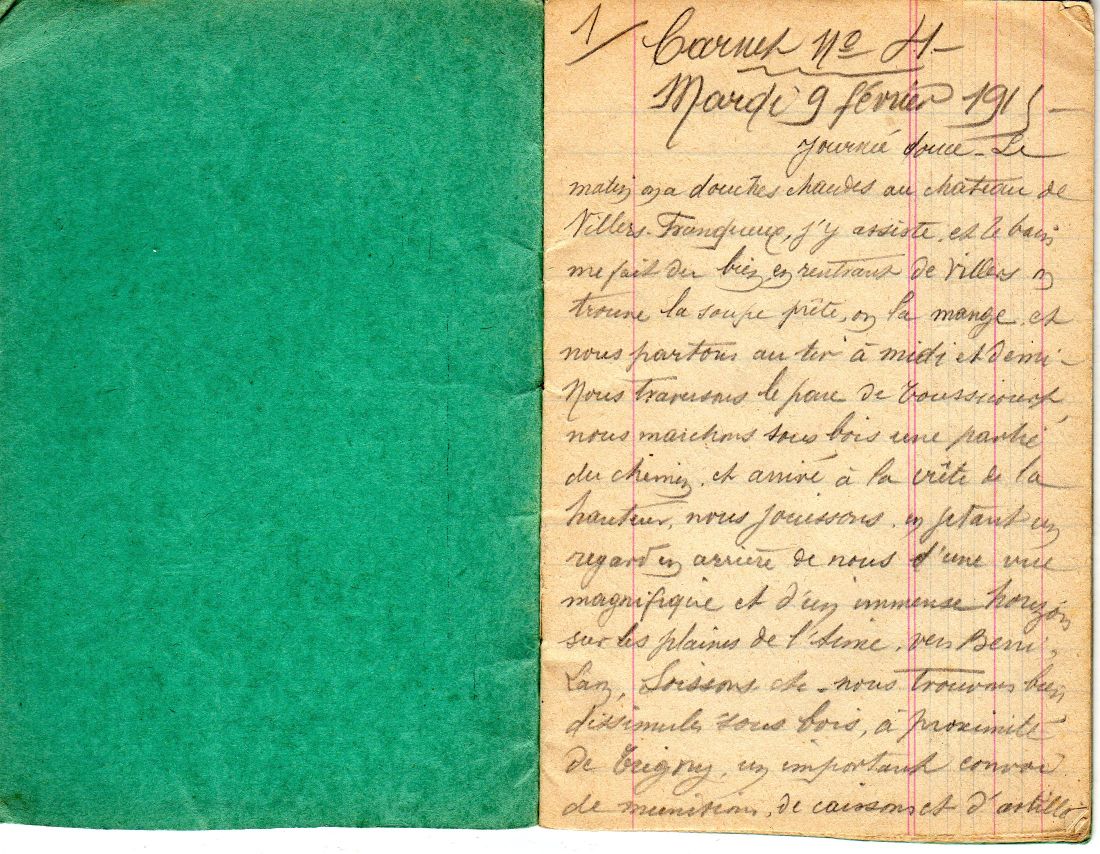 1/ Carnet No 4-
Mardi 9 février 1915 -
Journée douce - Le
matin on a douches chaudes au chateau de
Villers-Franqueux, j'y assiste, et le bain
me fait du bien, en rentrant de Villers on
trouve la soupe prête, on la mange, et
nous partons au tir à midi et demi -
Nous traversons le parc de Toussicourt,
nous marchons sous bois une partie
du chemin, et arrivé à la crête de la
hauteur, nous jouissons, en jetant un
regard en arrière de nous d'une vue
magnifique et d'un immense horizon
sur les plaines de l'Aisne, vers Berri,
Laon, Soissons etc - nous trouvons bien
dissimulés sous bois, à proximité
de Trigny, un important convoi
de munitions, de caissons et d'artille